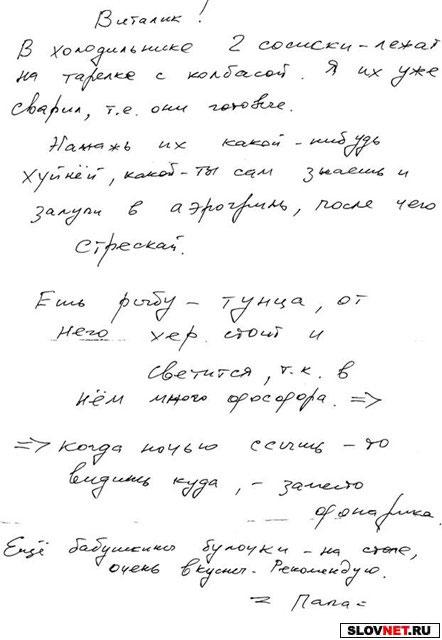 Виталик!
В холодильнике 2 сосиски - лежат
на тарелке с колбасой. Я их уже
сварил, т.е. они готовые.
Намажь их какой-нибудь
хуйнёй, какой-ты сам знаешь и
залупи в аэрогриль, после чего
стрескай.
Ешь рыбу - тунца, от
него хер стоит и
светится, т.к. в
нём много фосфора. =>
=> когда ночью ссышь - то
видишь куда, - заместо
фонарика.
Ещё бабушкины булочки - на столе,
очень вкусны. Рекомендую.
= Папа =
SLOVNET.RU